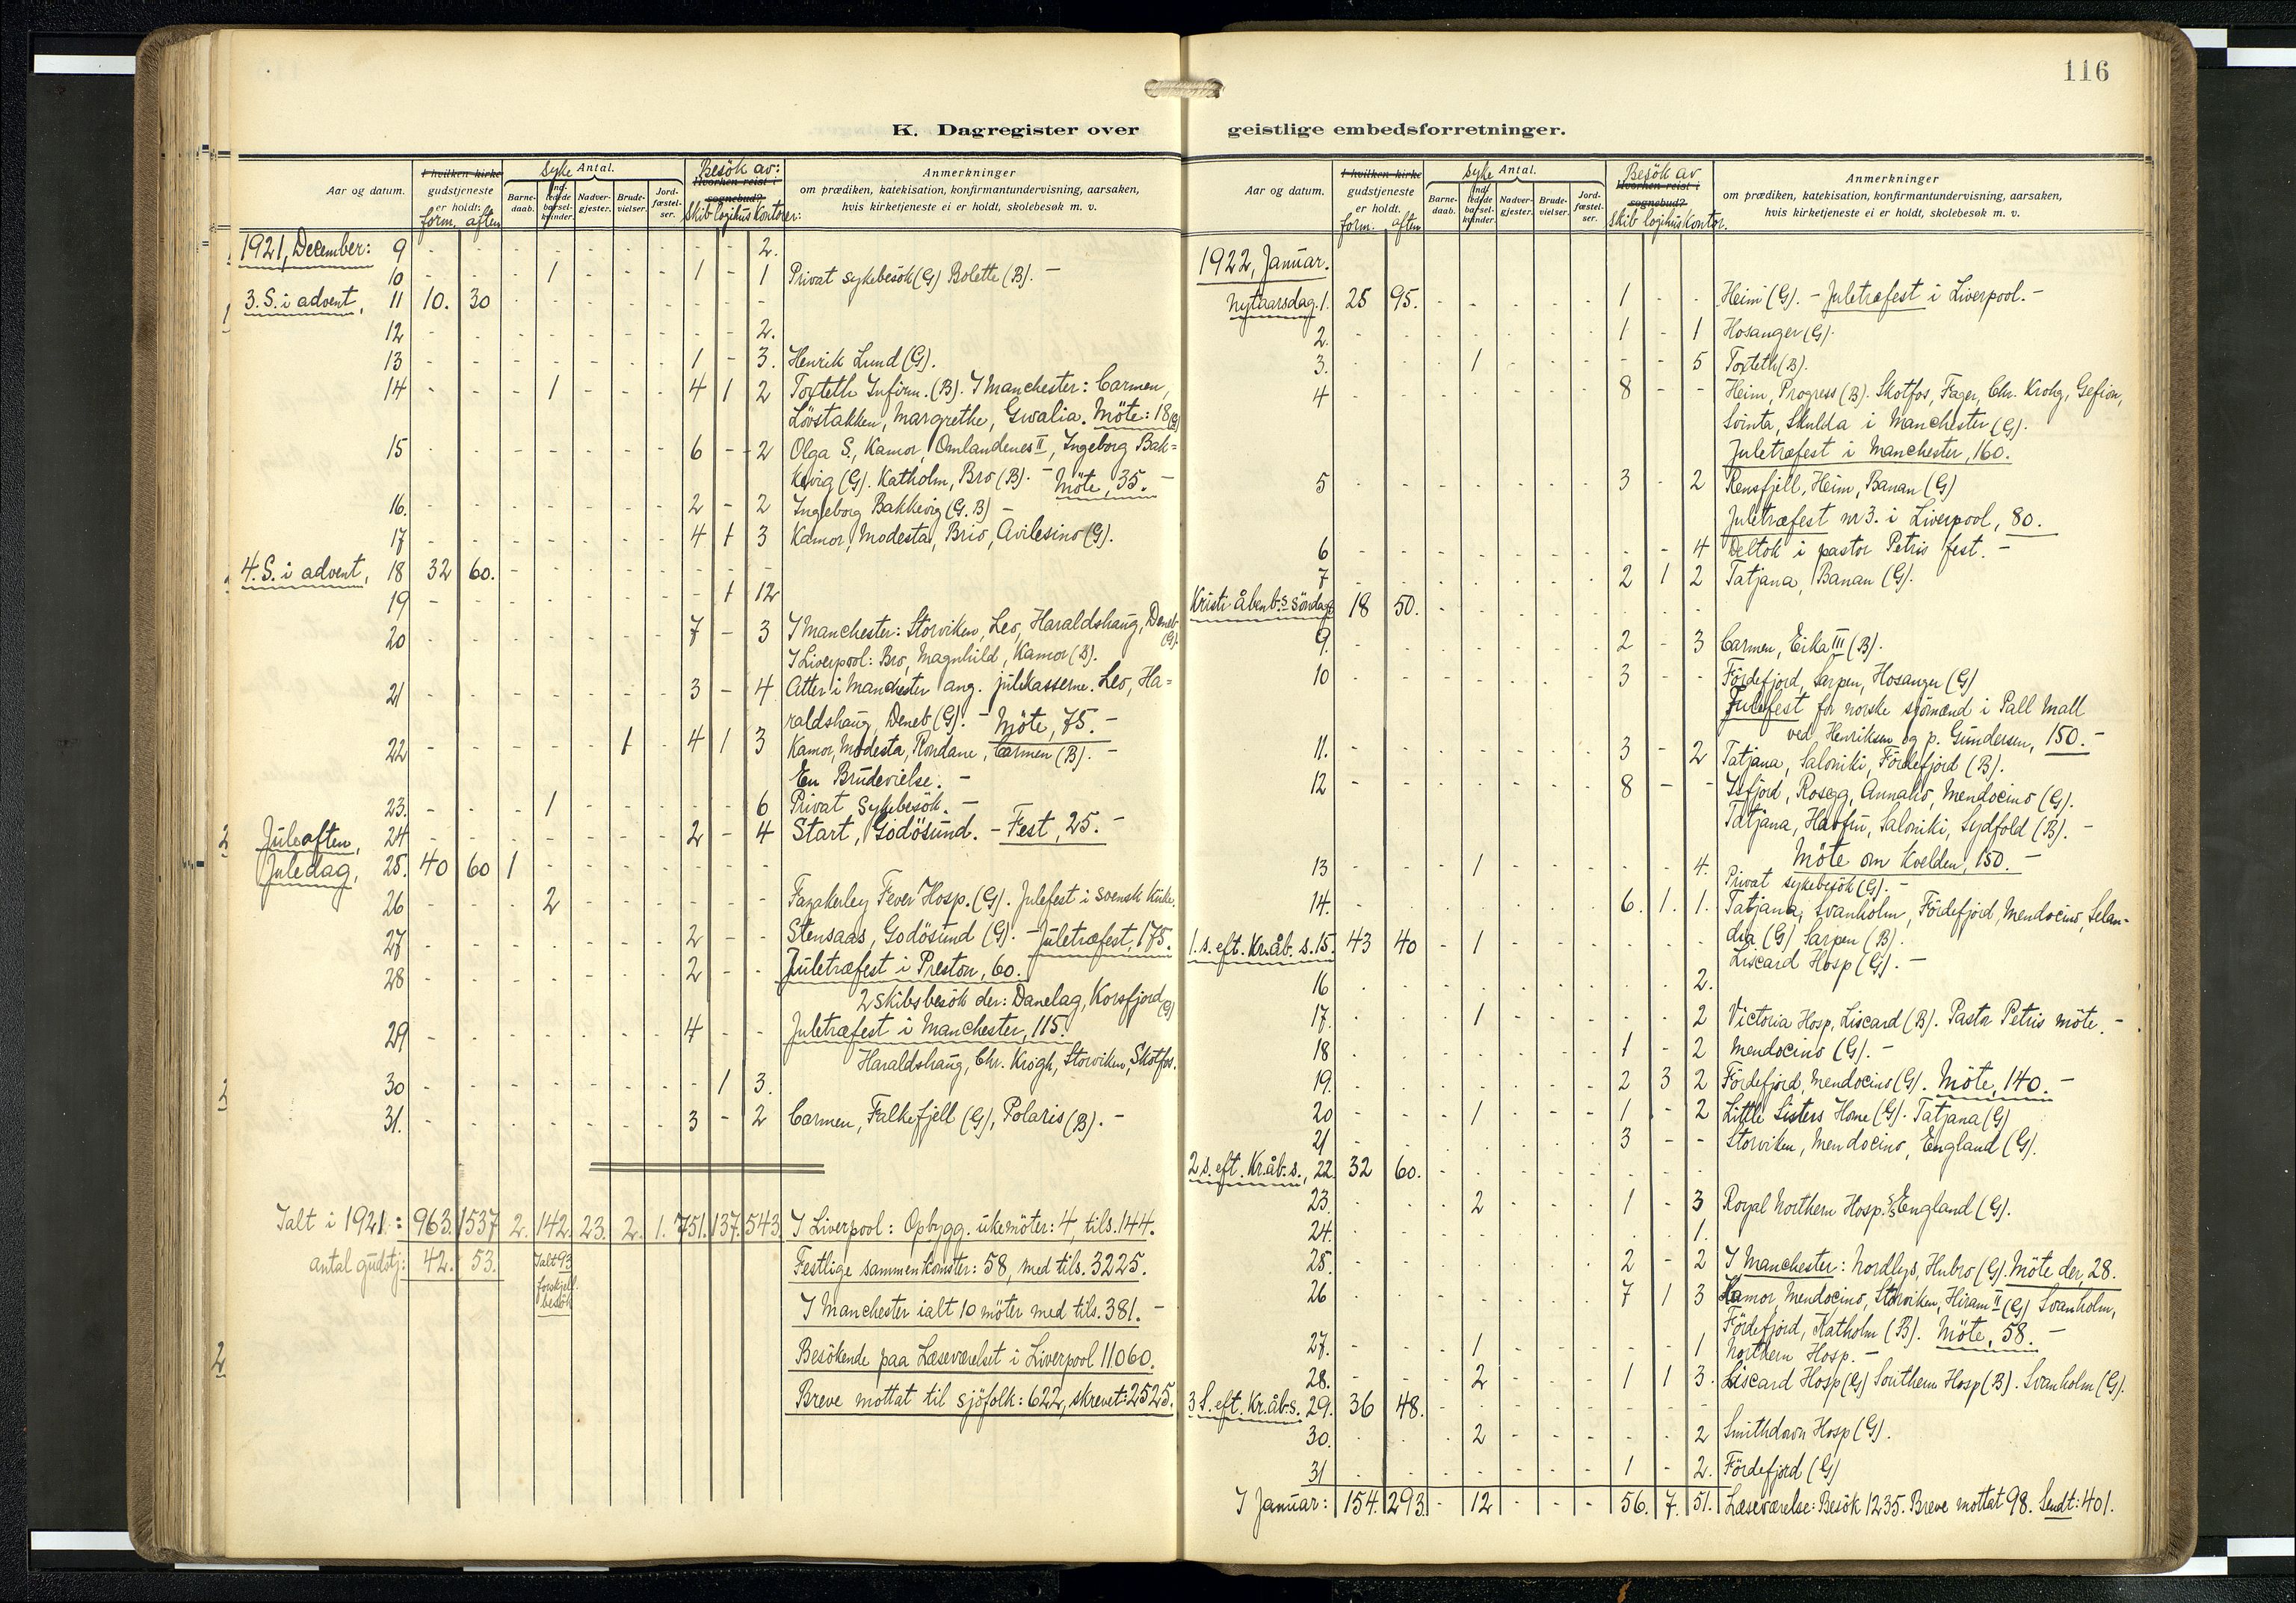 116
K. Dagregister over geistlige embedsforretninger.
Aar og datum.
I hvilken kirke gudstjeneste er holdt:
form. aften
Syke Antal.
Barne-daab.
Ind-ledede barsel-kvinder.
Nadver-gjester.
Brude-vielser.
Jord-fæstel-ser.
Besök av:
Hvorhen reist i sognebud?
Skib Logihus Kontorer:
Anmerkninger
om prædiken, katekisation, konfirmantundervisning, aarsaken,
hvis kirketjeneste ei er holdt, skolebesøk m. v.
1921, December: 9 - - - - - - - - - 2.
10 - - - 1 - - - 1 - 1 Privat sykebesök (G) Bolette (B). -
3. S. i advent, 11 10. 30 - - - - - - - -
12 - - - - - - - - - 2.
13 - - - - - - - 1 - 3. Henrik Lund (G).
14 - - - 1 - - - 4 1 2 Toxteth Infirm. (B). I Manchester: Carmen,
Lövstakken, Margrethe, Gwalia. Möte: 18 (G)
15 - - - - - - - 6 - 2 Olga S., Kamor, Omlandenes II, Ingeborg Bak=
kevig (G). Katholm, Bro (B). - Möte, 35. -
16. - - - - - - - 2 - 2 Ingeborg Bakkevig (G. B) -
17 - - - - - - - 4 1 3 Kamor, Modesta, Brio, Avilesino (G).
4. S. i advent, 18 32 60. - - - - - - - -
19 - - - - - - - - 1 12
20 - - - - - - - 7 - 3 I Manchester: Storviken, Leo, Haraldshaug, Deneb (G).
I Liverpool: Bro, Magnhild, Kamor (B).
21 - - - - - - - 3 - 4 Atter i Manchester ang. julekasserne. Leo, Ha=
raldshaug, Deneb (G). - Möte, 75. -
22 - - - - - 1 - 4 1 3 Kamor, Modesta, Rondane, Carmen (B). -
En Brudevielse. -
23. - - - 1 - - - - - 6 Privat Sykebesök. -
Juleaften, 24 - - - - - - - 2 - 4 Start, Godösund. - Fest, 25. -
Juledag, 25. 40 60 1
26 - - - 2 - - - - - - Fazakerley Fever Hosp. (G). Julefest i svensk kirke.
27 - - - - - - - 2 - - Stensaas, Godösund (G). - Juletræfest, 175.
28 - - - - - - - 2 - - Juletræfest i Preston, 60.
2 skibsbesök der: Danelag, Korsfjord (G)
29 - - - - - - - 4 - - Juletræfest i Manchester, 115.
Haraldshaug, Chr. Krogh, Storviken, Skotfos.
30 - - - - - - - - 1 3.
31. - - - - - - - 3 - 2 Carmen, Falkefjell (G), Polaris (B). -
Ialt i 1921: 963. 1537 2. 142. 23. 2. 1. 751. 137. 543. I Liverpool: Opbygg. ukemöter: 4, tils. 144.
antal gudstj: 42. 53. Ialt 93 forskjell. besök
Festlige sammenkomster: 58, med tils. 3225.
I Manchester ialt 10 möter med tils. 381. -
Besökende paa Læseværelset i Liverpool 11060.
Breve mottat til sjöfolk: 622, skrevet: 2525.
Aar og datum.
I hvilken kirke gudstjeneste er holdt.
form. aften
Syke Antal.
Barne-daab.
Ind-ledede barsel-kvinder.
Nadver-gjester.
Brude-vielser.
Jord-fæstel-ser.
Besök av
Hvorhen reist i sognebud?
Skib Logihus Kontor.
Anmerkninger
om prædiken, katekisation, konfirmantundervisning, aarsaken,
hvis kirketjeneste ei er holdt, skolebesøk m. v.
1922, Januar.
Nytaarsdag. 1. 25 95. - - - - - 1 - - Heim (G). - Juletræfest i Liverpool. -
2. - - - - - - - 1 - 1 Hosanger (G).
3. - - - 1 - - - - - 5 Toxteth (B).
4 - - - - - - - 8 - - Heim, Progress (B). Skotfos, Fager, Chr. Krohg, Gefion,
Svinta, Skulda i Manchester (G).
Juletræfest i Manchester, 160.
5 - - - - - - - 3 - 2 Rensfjell, Heim, Banan (G)
Juletræfest nr 3. i Liverpool, 80.
6 - - - - - - - - - 4 Deltok i pastor Petris fest. -
7 - - - - - - - 2 1 2 Tatjana, Banan (G).
Kristi åbenb.s söndag 18 50. - - - - - - - -
9. - - - - - - - 2 - 3 Carmen, Eika III (B).
10 - - - - - - - 3 - - Fördefjord, Sarpen, Hosanger (G)
Julefest for norske sjömænd i Pall Mall
ved Henriksen og p. Gundersen, 150. -
11. - - - - - - - 3 - 2 Tatjana, Saloniki, Fördefjord (B).
12 - - - - - - - 8 - - Isfjord, Rosegg, Annaho, Mendocino (G).
Tatjana, Havfru, Saloniki, Sydfold (B). -
Möte om kvelden, 150. -
13 - - - 1 - - - - - 4. Privat sykebesök (G). -
14. - - - - - - - 6. 1. 1. Tatjana, Svanholm, Fördefjord, Mendocino, Selan-
dia (G) Sarpen (B).
1. s. eft. Kr. åb. s. 15. 43 40 - 1 - - - - - - Liscard Hosp (G). -
16 - - - - - - - - - 2.
17. - - - 1 - - - - - 2 Victoria Hosp, Liscard (B). Pastor Petris möte. -
18 - - - - - - - 1 - 2 Mendocino (G). -
19. - - - - - - - 2 3 2 Fördefjord, Mendocino (G). Möte, 140. -
20 - - - 1 - - - 1 - 2 Little Sisters Home (G). Tatjana (G)
21 - - - - - - - 3 - - Storviken, Mendocino, England (G).
2 s. eft. Kr. åb. s., 22 32 60. - - - - - - - -
23. - - - 2 - - - 1 - 3 Royal Northern Hosp. S/S England (G).
24. - - - - - - - - - 1.
25. - - - - - - - 2 - 2 I Manchester: Nordlys, Hubro (G). Möte der, 28.
26 - - - - - - - 7 1 3 Kamor, Mendocino, Storviken, Hiram II (G) Svanholm,
Fördefjord, Katholm (B). Möte, 58. -
27. - - - 1 - - - - - 1 Northern Hosp. -
28. - - - 2 - - - 1 1 3. Liscard Hosp (G) Southern Hosp (B). Svanholm (G).
3 S. eft. Kr. åb. s. 29. 36 48. - - - - - - - -
30. - - - 2 - - - - - 2 Smithdown Hosp (G).
31 - - - - - - - 1 - 2. Fördefjord (G)
I Januar: 154. 293. - 12 - - - 56. 7. 51. Læseværelse: Besök 1235. Breve mottat 98. Sendt: 401.